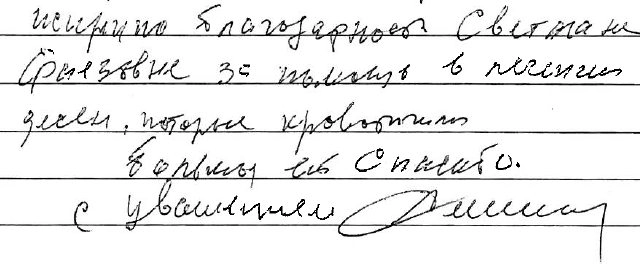 искрению благодарность Светлане
Фаезовне за помощь в лечении
десен, которые кровоточили
Большое ей Спасибо.
с уважением